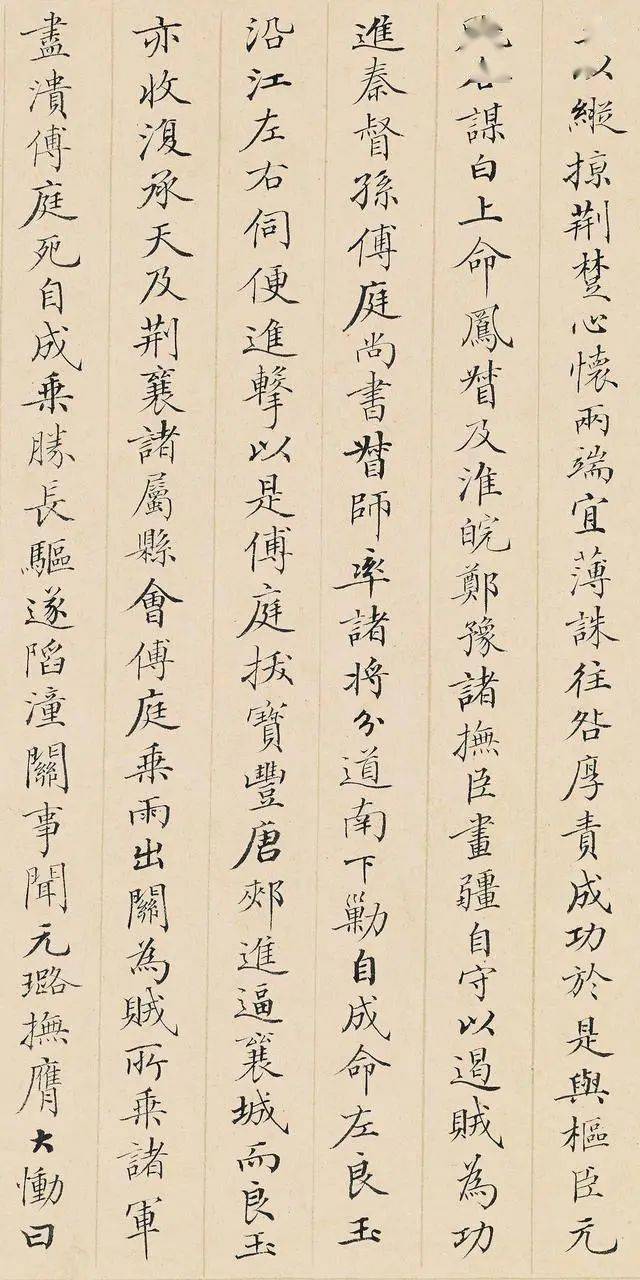 以縱掠荊楚心懷兩端宜薄誅往咎厚責成功於是與樞臣元
謀白上命鳳督及淮皖鄭豫諸撫臣畫疆自守以遏賊為功
進秦督孫傅庭尚書督師率諸將分道南下勦自成命左良玉
沿江左右伺便進擊以是傅庭拔寶豐唐郟進逼襄城而良玉
亦收復承天及荊襄諸屬縣會傅庭乘雨出關為賊所乘諸軍
盡潰傅庭死自成乗勝長驅遂陷潼關事聞元璐撫膺大慟曰